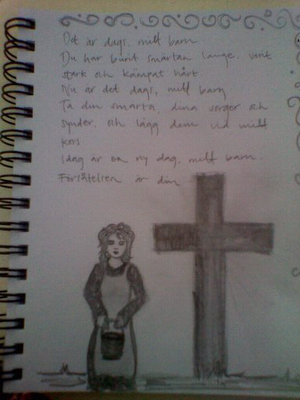 Det är dags, mitt barn
Du har burit smärtan länge, varit
stark och kämpat hårt
Nu är det dags, mitt barn
Ta din smärta, dina sorger och
synder, och lägg dem vid mitt
kors
Idag är en ny dag, mitt barn
Förlåtelsen är din